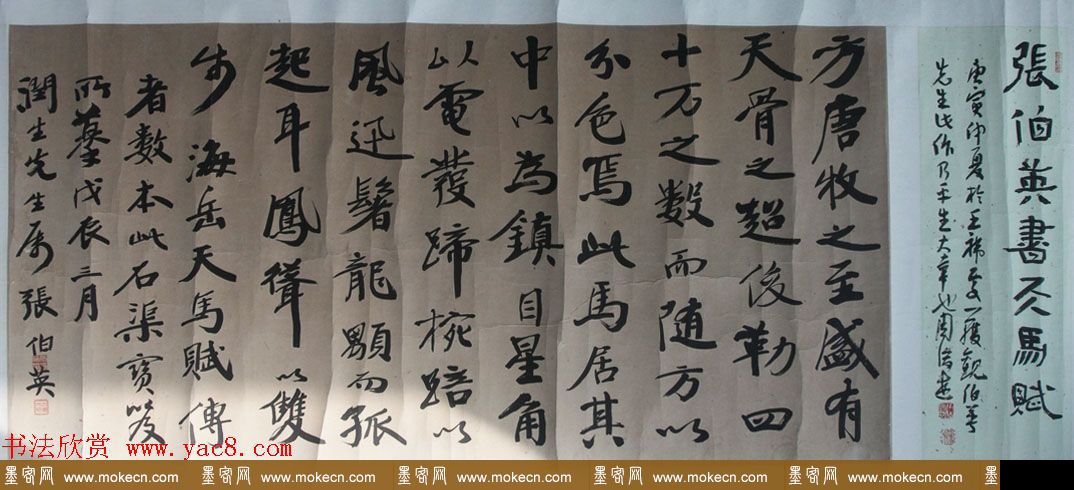 張伯英書天馬賦
庚寅仲夏於王稀齋獲觀伯英
先生此作乃平生大幸也
方唐牧之至盛有
天骨之超俊勒四
十万之數而随方以
分色焉此馬居其
中以為鎮目星角
以電發蹄椀踣以
風迅鬐龍顒而孤
起耳鳳聳以雙
步海岳天馬賦傳
者數本此石渠寶笈
所摹戊辰三月
潤生先生屬張伯英
书法欣赏 www.yac8.com
墨客网 www.mokecn.com 墨客网 www.mokecn.com 墨客网 www.mokecn.com 墨客网 www.mokecn.com 墨客网 www.mokecn.com 墨客网 www.mokecn.com 墨客网